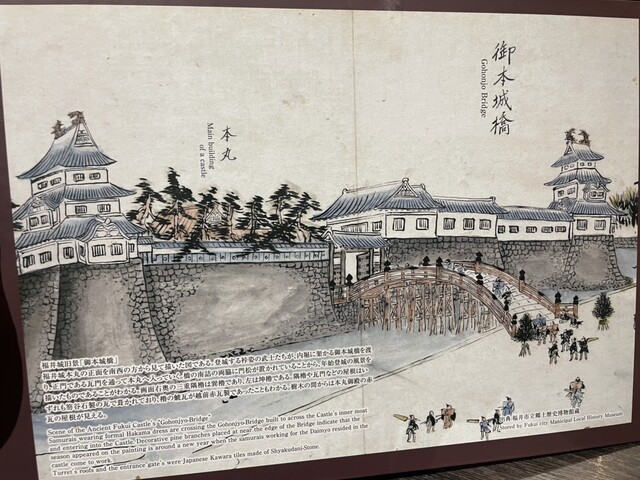 御本城橋
Gohonjo Bridge
本丸
Main building
of a castle
福井城旧景「御本城橋」
福井城本丸の正面を南西の方から見て描いた図である。登城する裃姿の武士たちが、内堀に架かる御本城橋を渡
り、正門である瓦門を通って本丸へ入っていく。橋の南詰の両脇に門松が置かれていることから、年始登城の風景を
描いたものであることがわかる。画面右奥の三重隅櫓は巽櫓であり、左は坤櫓である。隅櫓や瓦門などの屋根はい
ずれも笏谷石製の瓦で葺かれており、櫓の鯱瓦が越前赤瓦製であったこともわかる。樹木の間からは本丸御殿の赤
瓦の屋根が見える。
Scene of the Ancient Fukui Castle's "Gohonjyo-Bridge"
Samurais wearing formal Hakama dress are crossing the Gohonjyo-Bridge built to across the Castle's inner moat
and entering into the Castle. Decorative pine branches placed at near the edge of the Bridge indicate that the
season appeared on the painting is around a new year when the samurais working for the Daimyo resided in the
castle come to work.
Turret's roots and the entrance gate's were Japanese Kawara tiles made of Shyakudani-Stone.
福井市立郷土歴史博物館蔵
Stored by Fukui city Municipal Local History Museum